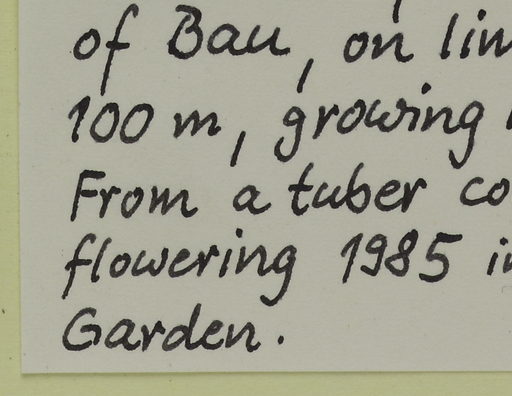 of Bau, on lim
100 m, growing
From a tuber co
flowering 1985 in
Garden.